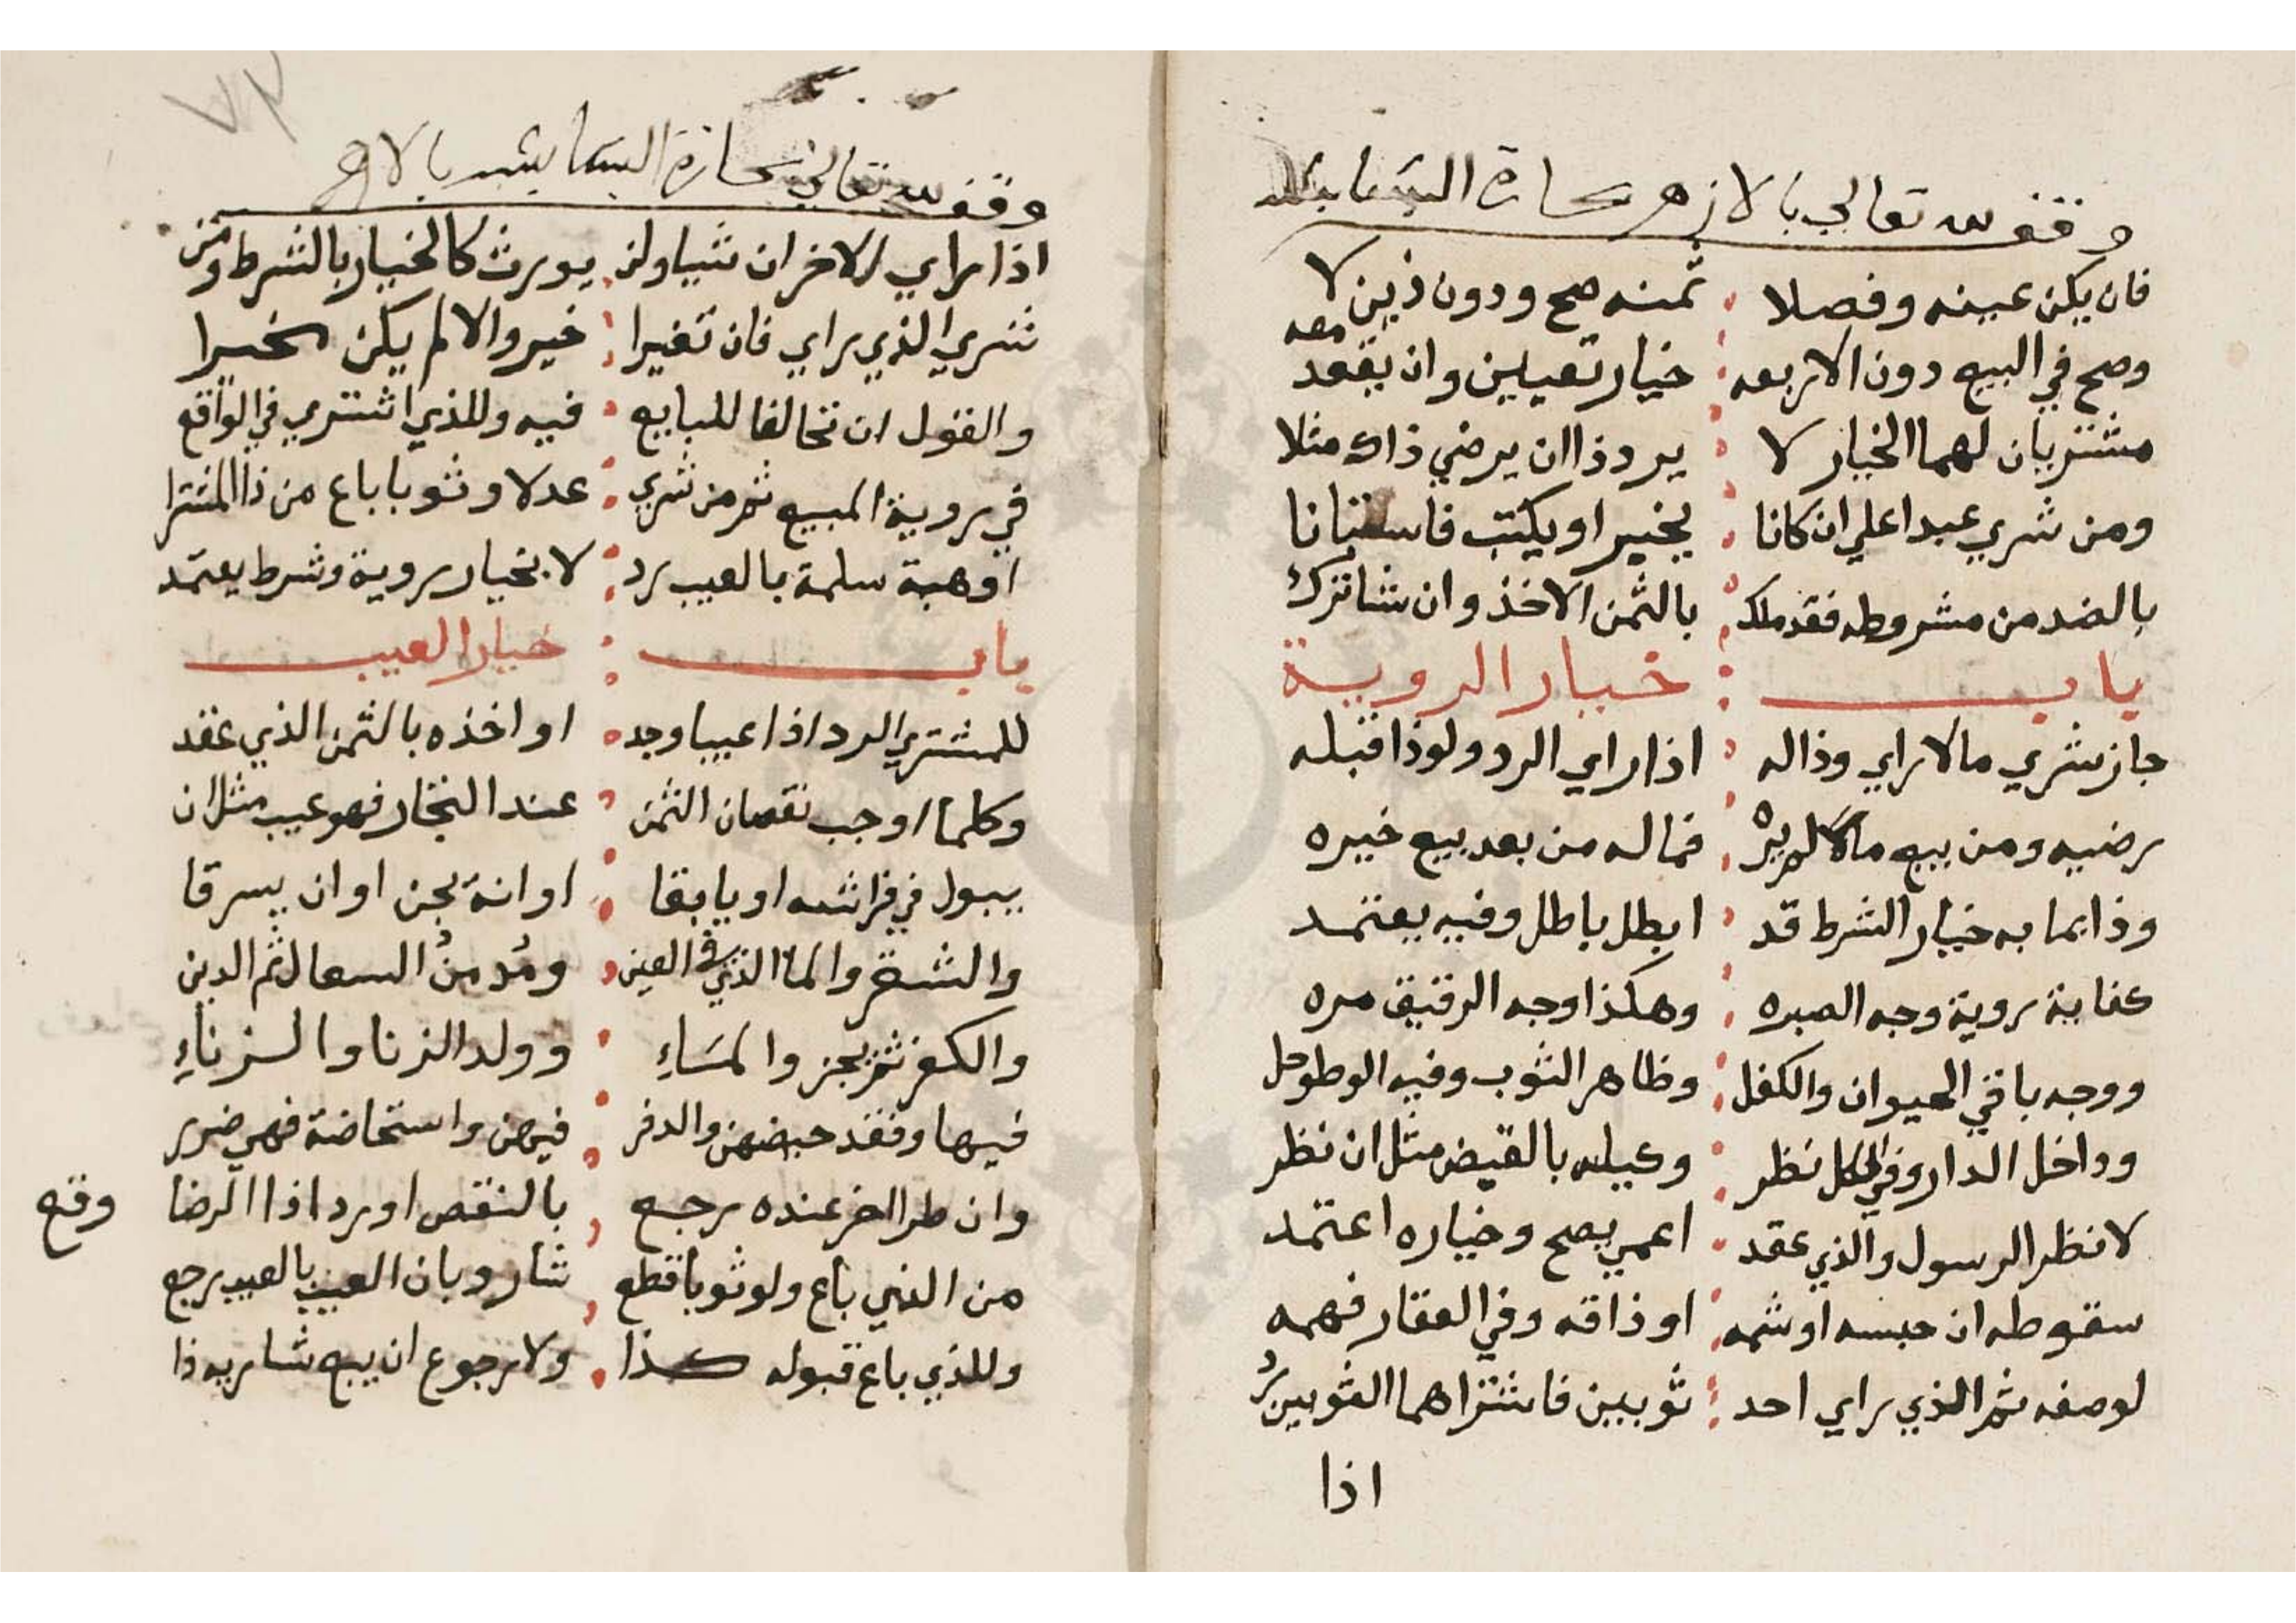 وقف لله تعالي بالازهر بحارة البشابشه
فان يكن عينه وفصلا ثمنه صح ودون ذين لا
وصح في البيع دون الاربعه خيار تعيين وان يقعد معه
مشتريان لهما الخيار لا يرد ذا ان يرضي ذاك مثلا
ومن شري عبدا علي ان كانا يخبر او يكتب فاستبانا
بالضد من مشروطه فقد ملك بالثمن الاخذ وان شا ترك
باب خيار الروية
جاز شري مالا راي وذا له اذا راي الرد ولو ذا قبله
رضيه ومن يبيع مالا لم يره فما له من بعد بيع خيره
وذا بما به خيار الشرط قد ابطل باطل وفيه يعتمد
كفاية روية وجه الصبره وهكذا وجه الرقيق مره
ووجه باقي الحيوان والكفل وظاهر الثوب وفيه الوطوحل
وداخل الدار وفي الكل نظر وكيله بالقبض مثل ان نظر
لا نظر الرسول والذي عقد اعمي يصح وخياره اعتمد
سقوطه ان حبسه او شمه او ذاقه وفي العقار فهمه
لوصفه ثم الذي راي احد ثوبيين فاشتراهما الثوبين رد
اذا
٧٣
وقف لله تعالي بحارة البشابشه بالازهر
اذا راي الاخر ان شيا ولن يورث كالخيار بالشرط ومن
شري الذي راي فان تغيرا خير والا لم يكن مخيرا
والقول ان تخالفا للبايع فيه وللذي اشتري في الواقع
في روية المبيع ثم من شري عدلا وثوبا باع من ذا المشترا
او هبة سلمة بالعيب رد لا بخيار روية وشرط يعتمد
باب خيار العيب
للمشتري الرد اذا عيبا وجد او اخذه بالثمن الذي عقد
وكلما اوجب نقصان الثمن عند التجار فهو عيب مثل ان
يبول في فراشه او يابقا او انه يجن او ان يسرقا
والشقر والما الذي في العين ومدمن السعال ثم الدين
والكفر ثم بجز والمساء وولد الزنا والزناء
فيها وفقد حيضهن والدفر فيهن واستحاضة فهي ضرر
وان طرا اخر عنده رجع بالنقص او رد اذا الرضا وقع
من الذي باع ولو ثوبا قطع شار وبان العيب بالعيب رجع
وللذي باع قبوله كذا ولا رجوع ان يبع شاريه ذا